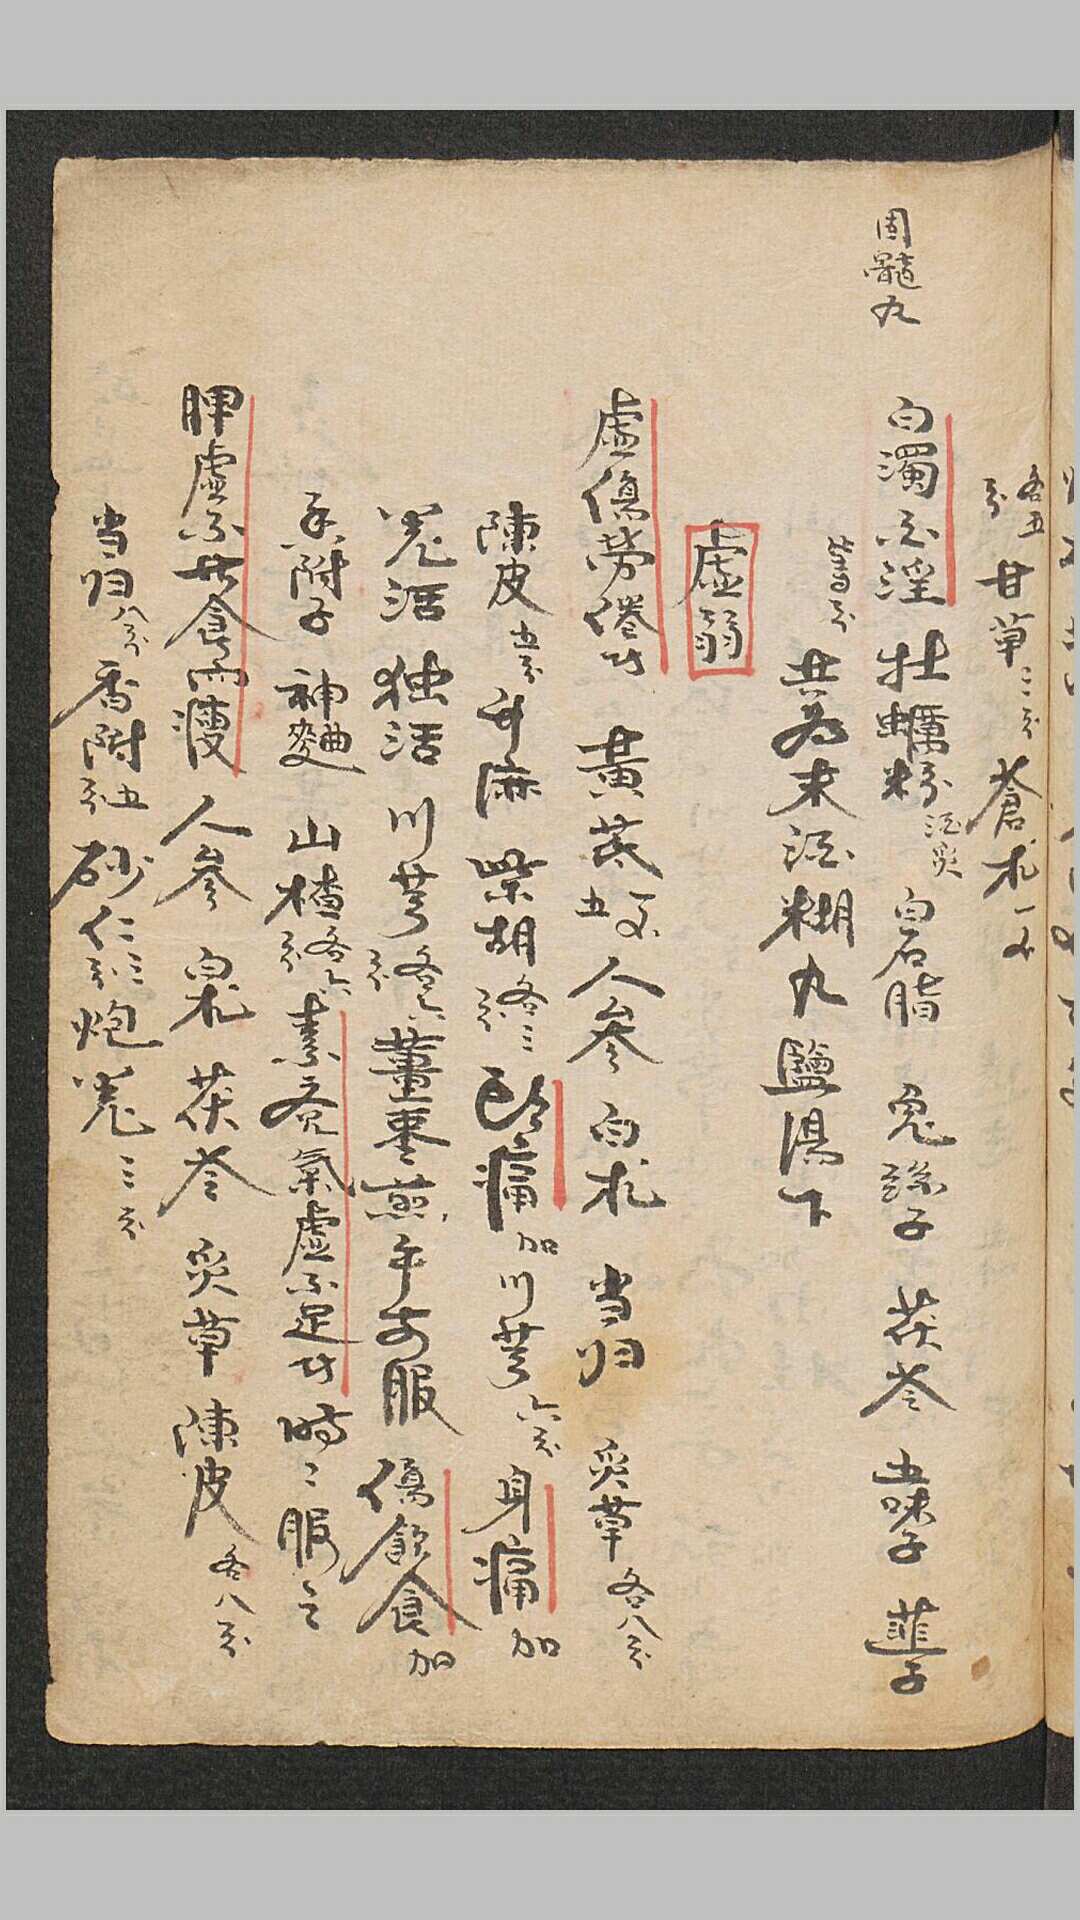 各五分 甘草二分 蒼朮一不
固髓丸
白濁白淫 牡蠣粉 白石脂 兔絲子 茯苓 五味子 韮子
共為末酒糊丸鹽湯下
虛弱
虛傷勞倦 黃芪 五分 人參 白朮 当归 炙草各八分
陳皮五分 升麻 柴胡各三分 頭痛加川芎六分 身痛加
羌活 独活 川芎各六分 薑棗煎 午前服 傷飲食加
香附子 神麯 山楂各六分 素稟氣虛不足 時〻服之
脾虛不甘食而瘦 人參 白朮 茯苓 炙草 陳皮各八分
当归八分 香附五分 砂仁三分 炮羌三分